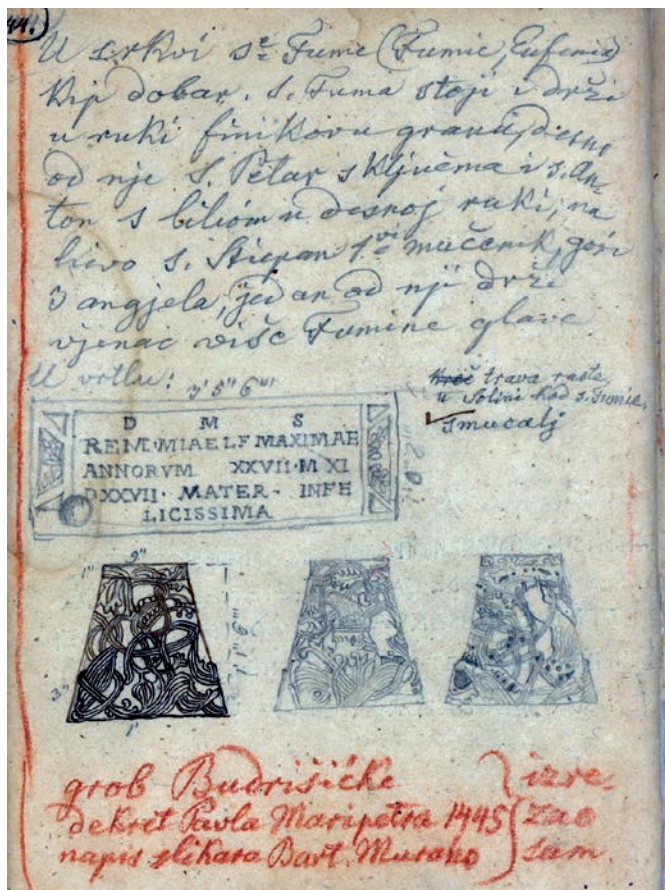 44.
U crkvi s.e Fume (Fumie, Eufemia)
Kip dobar. S. Fuma stoji i drži
u ruki finikovu granu, desno
od nje S. Petar s ključema i S. An-
ton s biliom u desnoj ruki, na
lievo S. Stiepan 1.vi mučenik, gori
3 angjela, jedan od nji drži
vjenac više Fumine glave
U vrtlu: 3' 5" 6"'
trava raste
u Solini kod s. Fumie.
smucalj
D M S
REM·MIAELF MAXIMAE
ANNORVM XXVII·M XI
DXXVII· MATER· INFE
LICISSIMA
1" 2"
3"
1"
grob Budrišićke } izre-
dekret Pavla Maripetra 1445 } zao
napis slikara Bart. Murano } sam.